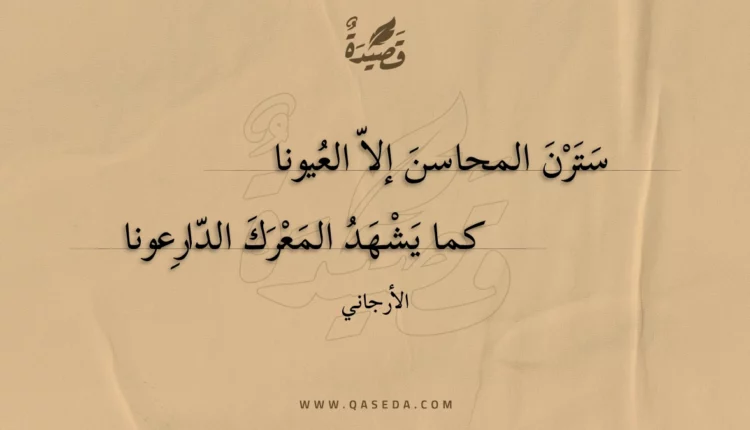 قَصِيْدَةٌ
سَتَرْنَ المحاسنَ إلاّ العُيونا
كما يَشْهَدُ المَعْرَكَ الدّارِعونا
الأرجاني
WWW.QASEDA.COM